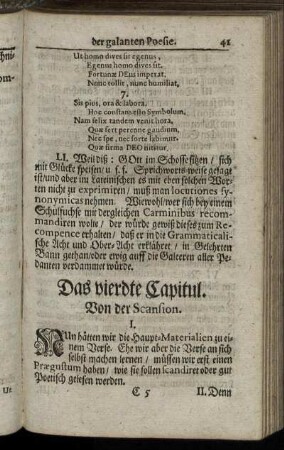 der galanten Poesie. 41
Ut homo dives sit egenus,
Egenus homo dives sit.
Fortunæ DEus imperat.
Nunc tollit, nunc humiliat,
7.
Sis pius, ora & labora.
Hoc constans esto symbolum.
Nam felix tandem venit hora,
Quæ fert perenne gaudium,
Nec spe, nec sorte labimur.
Quæ firma DEO nititur.
LI. Weil diß: GOtt im Schosse sitzen / sich
mit Glücke speisen / u. s. f. Sprichworts-weise gesagt
ist / und aber im Lateinischen es mit eben solchen Wor-
ten nicht zu exprimiren / muß man locutiones sy-
nonymicas nehmen. Wiewohl / wer sich bey einem
Schulfuchse mit dergleichen Carminibus recom-
mandiren wolte / der würde gewiß dieses zum Re-
compence erhalten / daß er in die Grammaticali-
sche Acht und Ober-Acht erkläret / in Gelehrten
Bann gethan / oder ewig auff die Galeeren aller Pe-
danten verdammet würde.
Das vierdte Capitul.
Von der Scansion.
I.
NUn hätten wir die Haupt-Materialien zu ei-
nem Verse. Ehe wir aber die Verse an sich
selbst machen lernen / müssen wir erst einen
Prægustum haben / wie sie sollen scandiret oder gut
Poetisch gelesen werden.
C 5 II. Denn